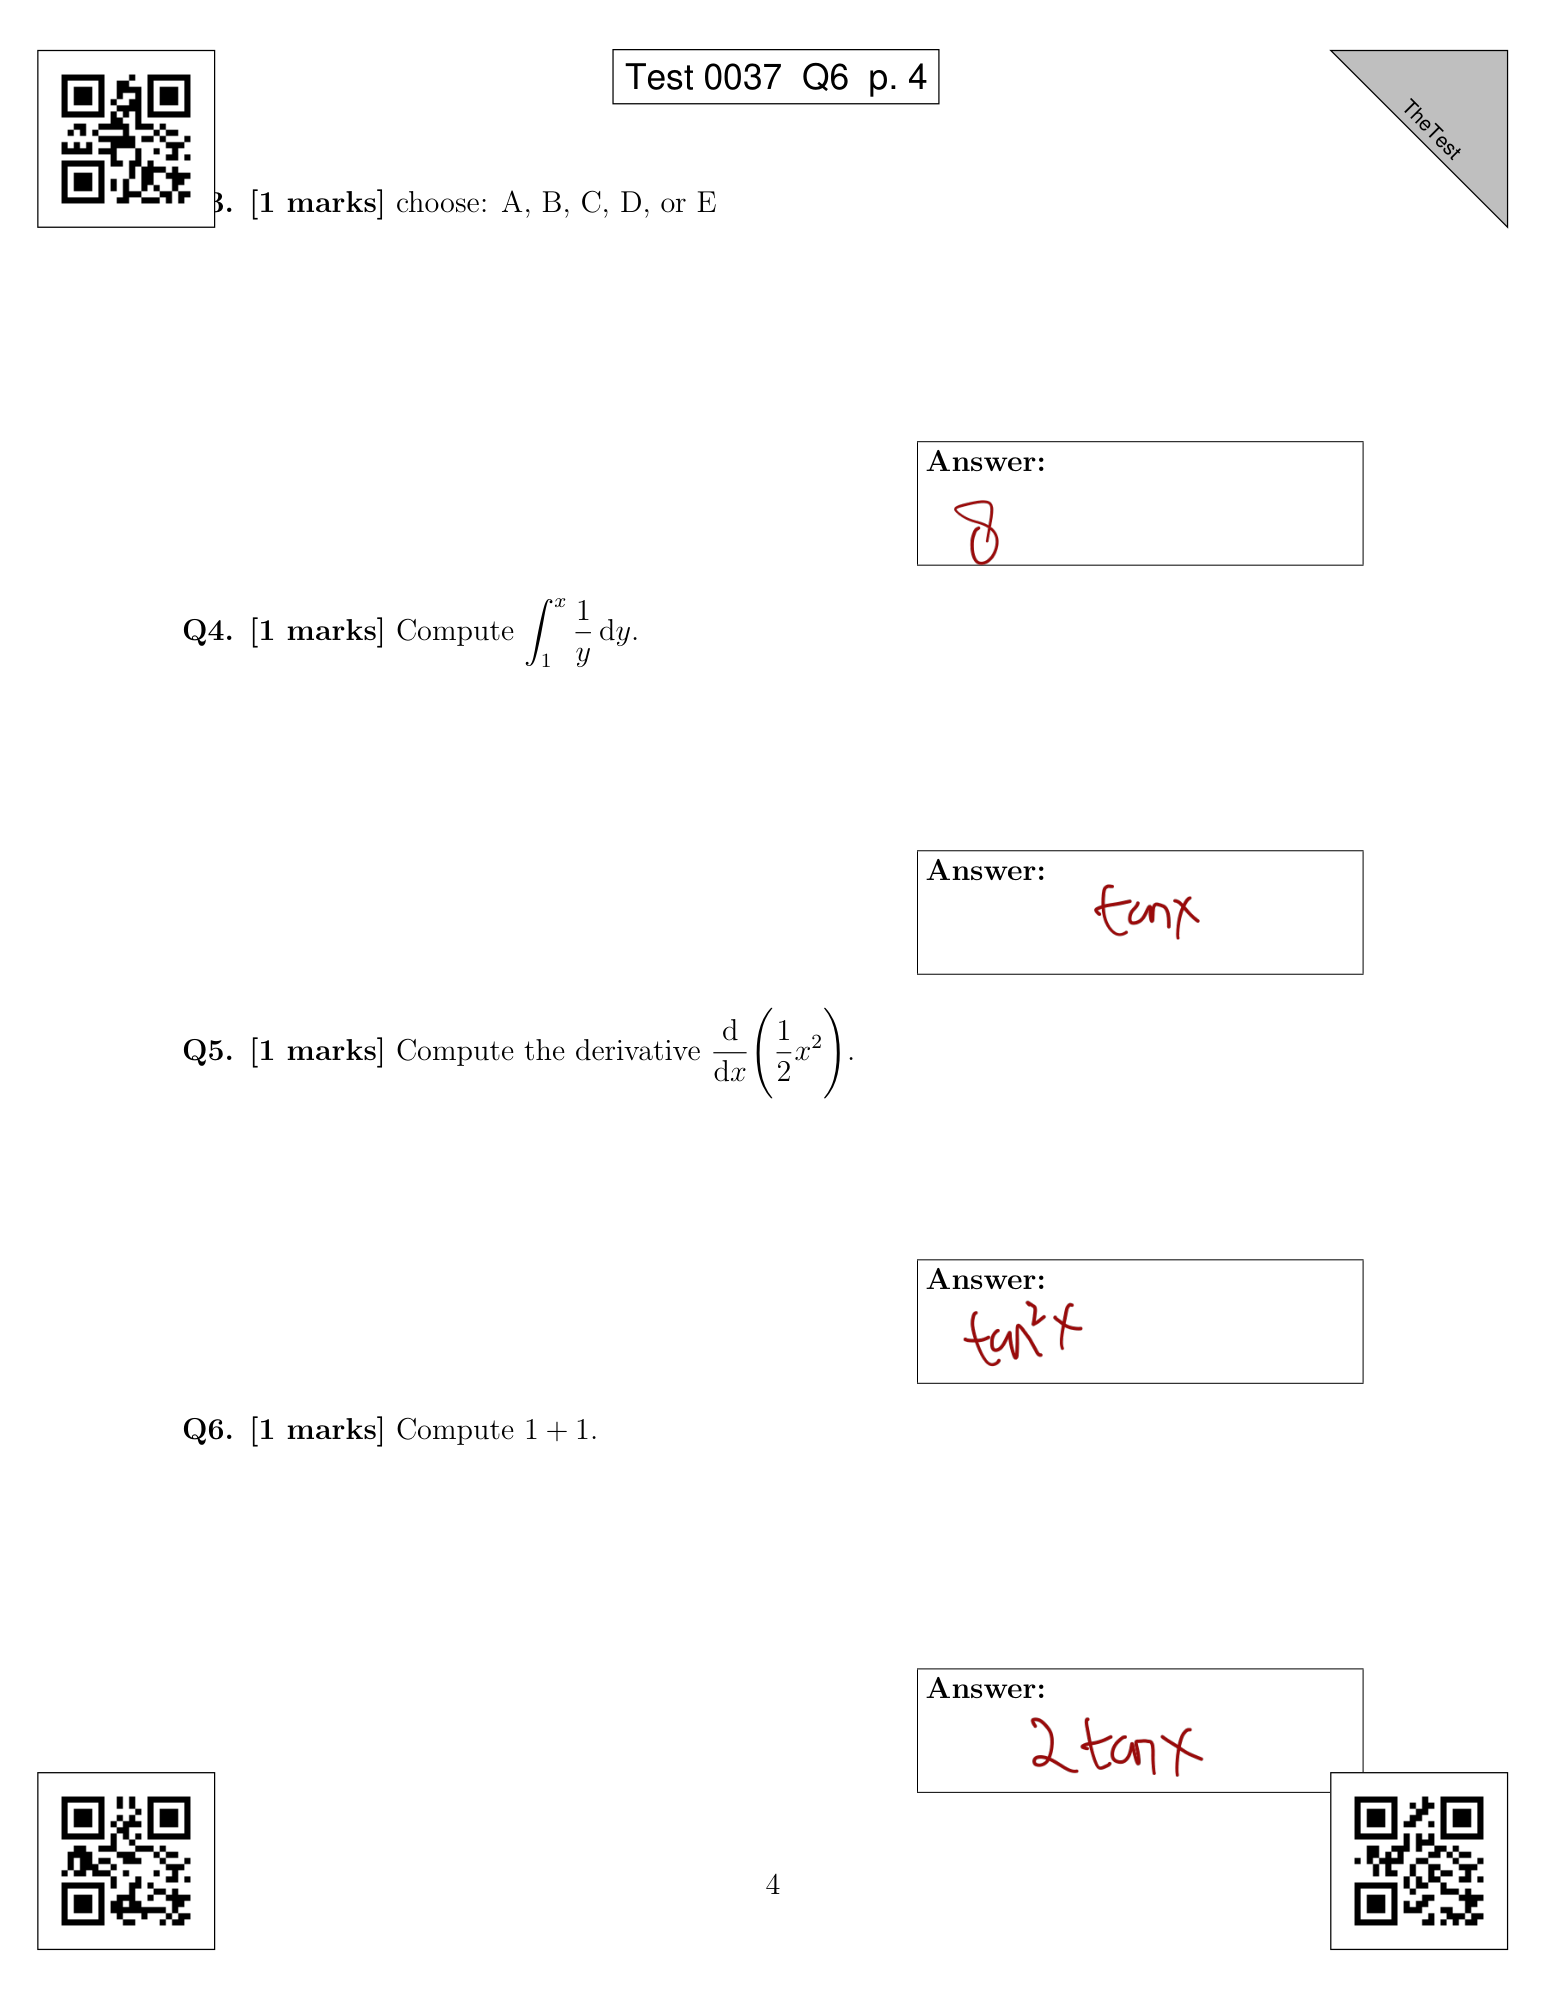 Test 0037 Q6 p. 4
TheTest
3. [1 marks] choose: A, B, C, D, or E
Answer:
8
Q4. [1 marks] Compute \int_1^x \frac{1}{y} dy.
Answer:
tan x
Q5. [1 marks] Compute the derivative \frac{d}{dx}\left(\frac{1}{2}x^2\right).
Answer:
tan²x
Q6. [1 marks] Compute 1 + 1.
Answer:
2 tan x
4